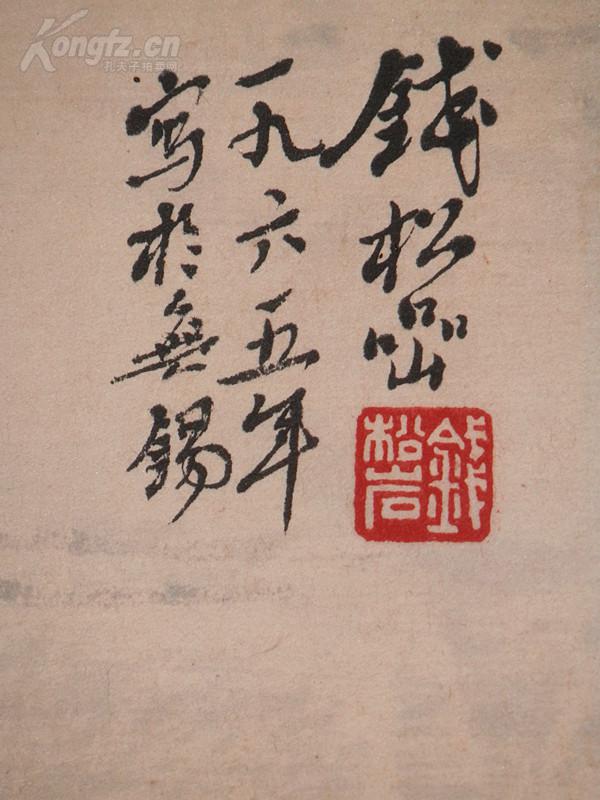 Kongfz.cn
孔夫子拍卖网
錢松喦
一九六五年
寫於無錫
錢松岩